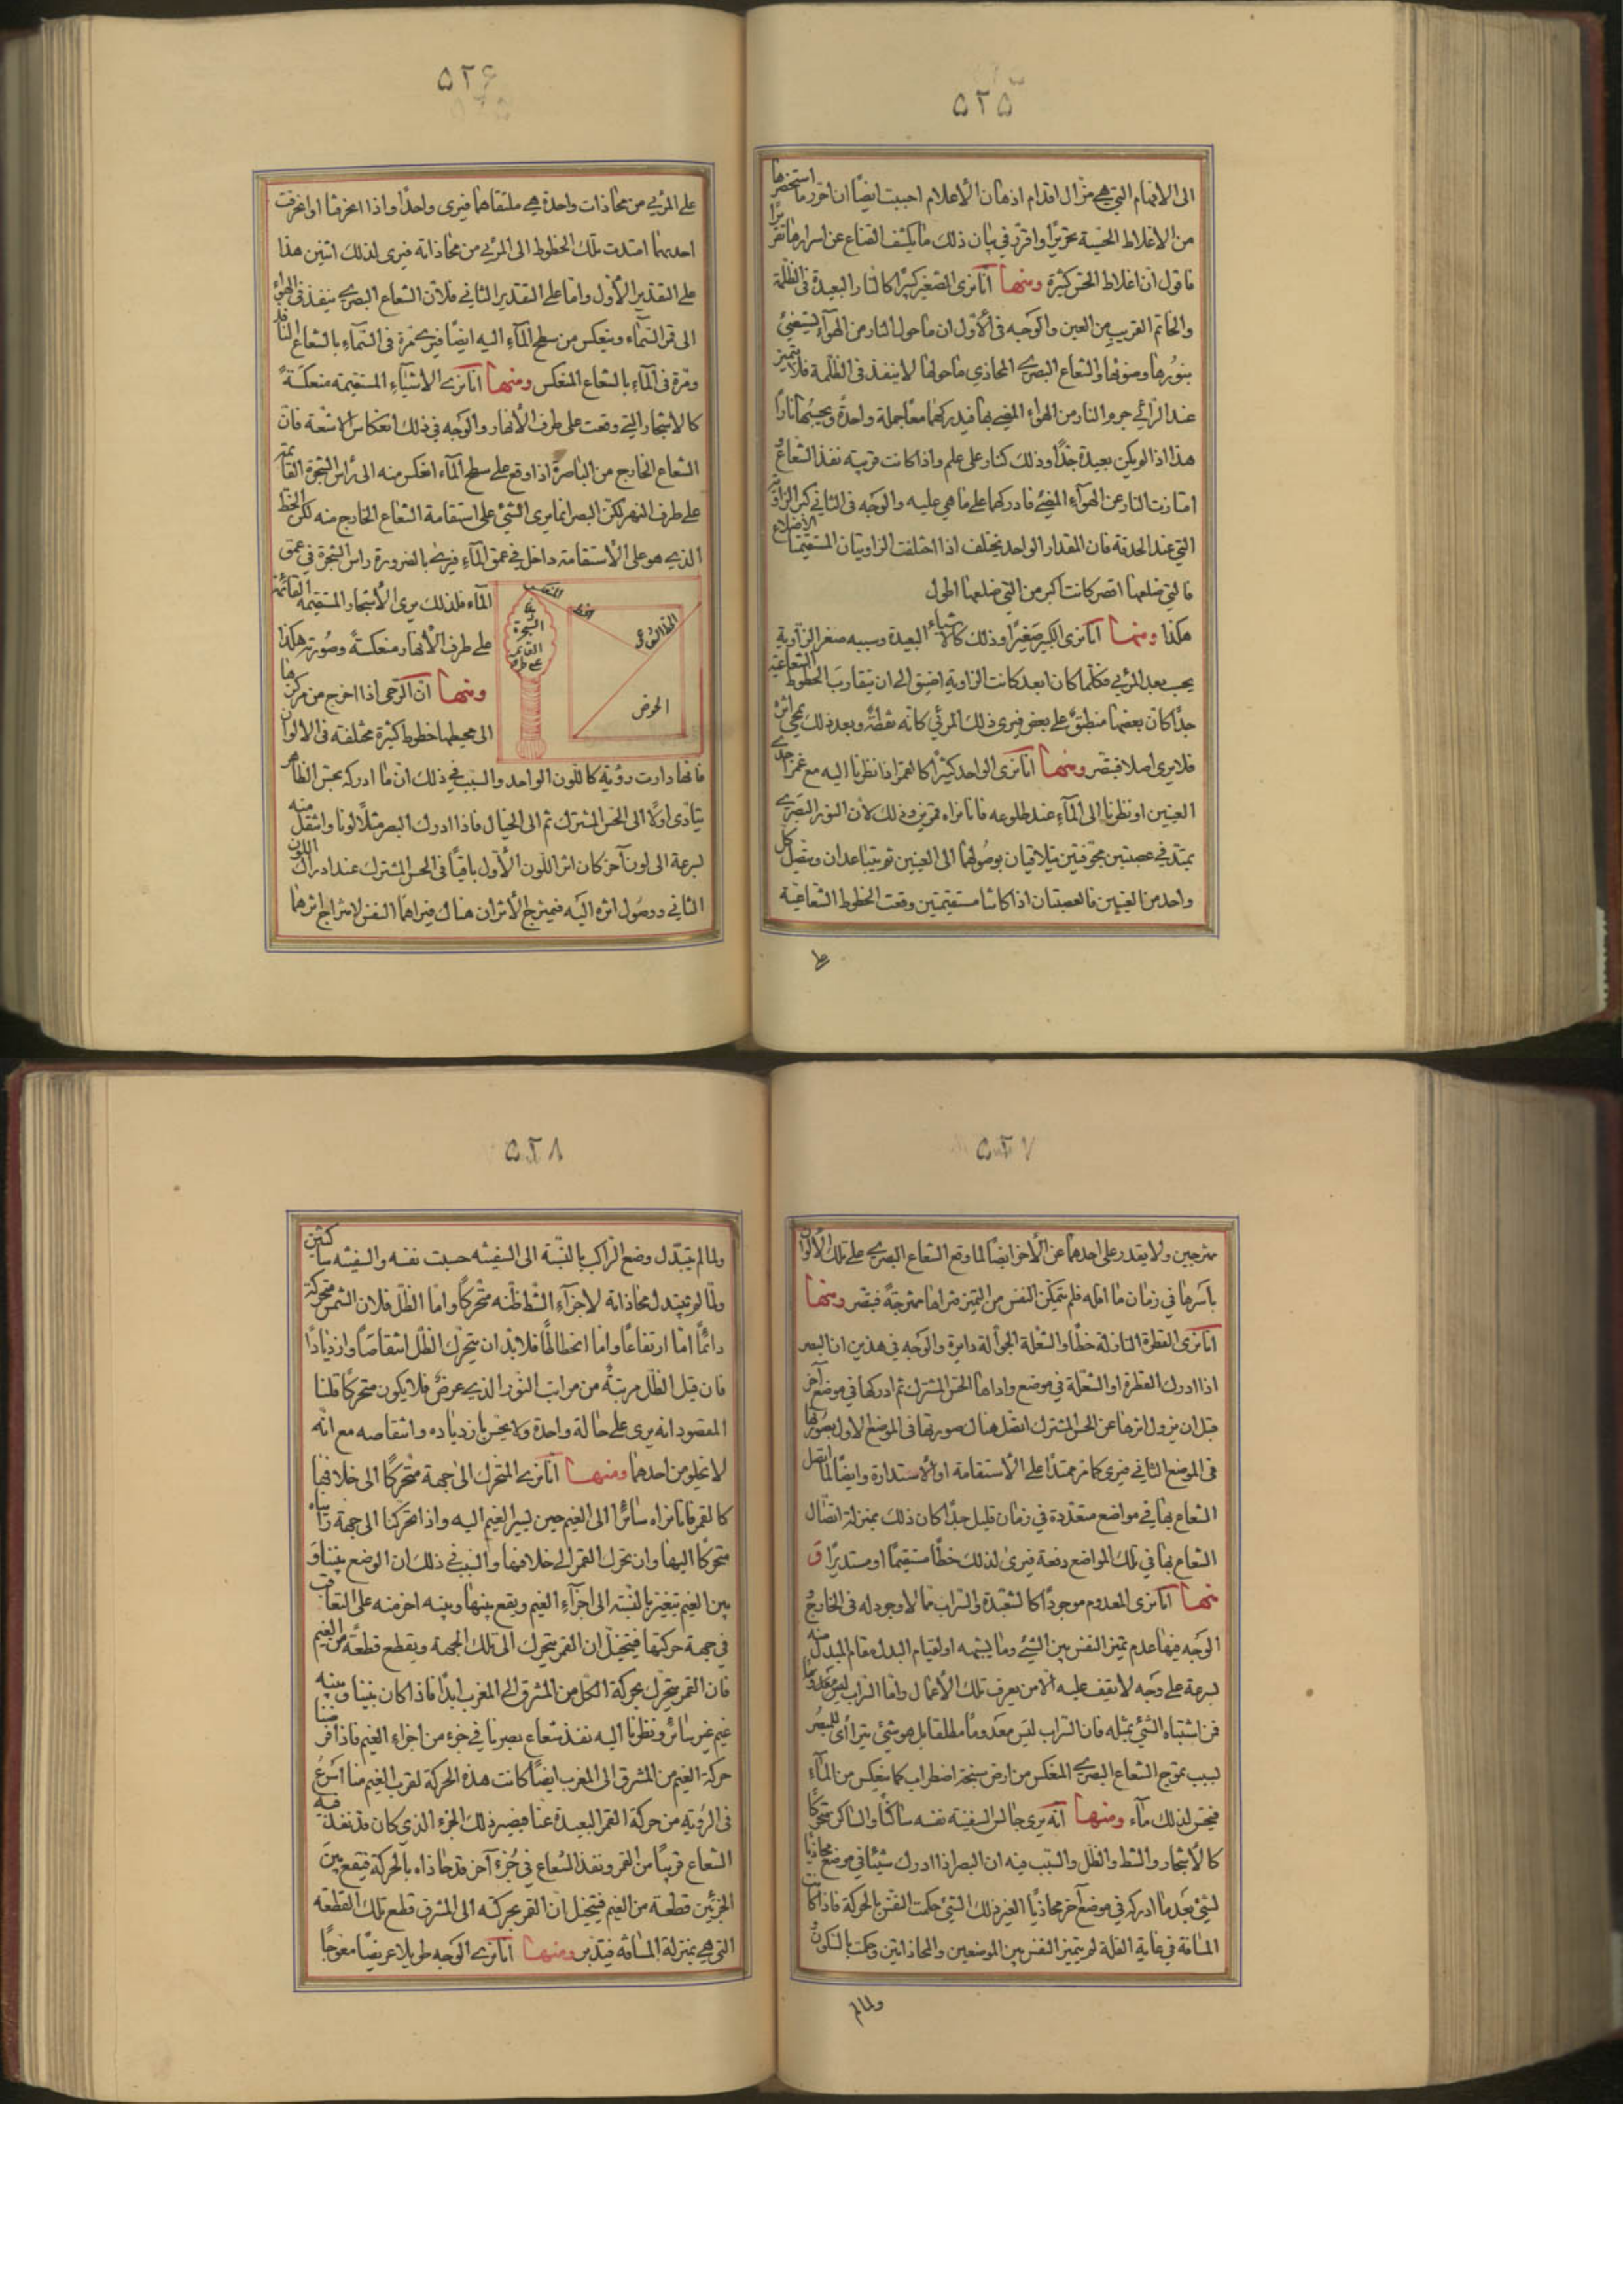 ٥٢٥
الى الافهام التي هي مزال اقدام اذهان الأعلام احببت ايضًا ان احرر ما استحضرها
من الاغلاط الحسية تحريرًا واقرر في بيان ذلك ما يكشف القناع عن اسرارها تقريرًا
فاقول ان اغلاط الحس كثيرة ومنها انا نرى الصغير كبيرًا كالنار البعيدة في الظلمة
والخاتم القريب من العين والوجه في الأول ان ما حول النار من الهوآء يستضئ
بنورها وضوئها والشعاع البصري المحاذي ما حولها لا ينفذ في الظلمة فلا يتميز
عند الرائي جرم النار من الهواء المضئ بها فيدركهما معًا جملة واحدة ويحسبهما نارًا
هذا اذا لم يكن بعيدة جدًا وذلك كنار على علم واذا كانت قريبة نفذ الشعاع و
امتازت النار عن الهوآء المضئ فادركها على ما هي عليه والوجه في الثاني كبر الزاوية
التي عند الحدقة فان المقدار الواحد يختلف اذا اختلفت الزاويتان المستقيمتا الأضلاع
فالتي ضلعها اقصر كانت اكبر من التي ضلعها اطول
هكذا ومنها انا نرى الكبير صغيرًا وذلك كالأشياء البعيدة وسببه صغر الزاوية
بحسب بعد المرئي فكلما كان ابعد كانت الزاوية اضيق الى ان يتقارب الخطوط الشعاعية
جدًا كان بعضها منطبق على بعض فيرى ذلك المرئي كانه نقطة وبعد ذلك يمحي اثره
فلا يرى اصلا فتبصر ومنها انا نرى الواحد كثيرًا كالقمر اذا نظرنا اليه مع غمز احدى
العينين او نظرنا الى المآء عند طلوعه فانا نراه قمرين وذلك لأن النور البصري
يمتد في عصبتين مجوفتين يتلاقيان بوصولهما الى العينين ثم يتباعدان ويتصل كل
واحد من العينين فالعصبتان اذا كانتا مستقيمتين وقعت الخطوط الشعاعية
على
٥٢٦
على المرئي من محاذات واحدة هي ملتقاهما فيرى واحدًا واذا انحرفتا او انحرفت
احديهما امتدت تلك الخطوط الى المرئي من محاذاته فيرى لذلك اثنين هذا
على التقدير الأول واما على التقدير الثاني فلان الشعاع البصري ينفذ في الهواء
الى قمر السماء وينعكس من سطح المآء اليه ايضًا فيرى مرة في السمآء بالشعاع النافذ
ومرة في المآء بالشعاع المنعكس ومنها انا نرى الاشياء المستقيمة منعكسة
كالاشجار التي وقعت على طرف الأنهار والوجه في ذلك انعكاس الاشعة فان
الشعاع الخارج من الباصرة اذا وقع على سطح المآء انعكس منه الى راس الشجرة القائمة
على طرف النهر لكن البصر انما يرى الشئ على استقامة الشعاع الخارج منه لكن الخط
الذي هو على الأستقامة داخل في عمق المآء فيرى بالضرورة راس الشجرة في عمق
المآء فلذلك يرى الأشجار المستقيمة القائمة
على طرف الأنهار منعكسة وصورته هكذا
ومنها ان الرحى اذا اخرج من مركزها
الى محيطها خطوط كثيرة مختلفة في الالوان
الشجرة
القائم
على طرف
الخط الشعاعي
الحوض
فانها دارت رؤية كاللون الواحد والسبب في ذلك ان ما ادركه بحس الظاهر
يتادى اولًا الى الحس المشترك ثم الى الخيال فاذا ادرك البصر مثلًا لونا وانتقل منه
لسرعة الى لون آخر كان اثر اللون الأول باقيًا في الحس المشترك عند ادراك اللون
الثاني ووصول اثره اليه فيمتزج الأثران هناك فيراهما النفس لامتزاج اثرهما
٥٢٧
ممتزجين ولا يقدر على احدهما عن الأخر ايضًا لما وقع الشعاع البصري على تلك الألوان
بأسرها في زمان ما امله فلم يتمكن النفس من التميز فتراها ممتزجة فتبصر ومنها
انا نرى القطرة النازلة خطًا والشعلة الجوالة دايرة والوجه في هذين ان البصر
اذا ادرك القطرة او الشعلة في موضع واداها الحس المشترك ثم ادركها في موضع آخر
قبل ان يزول اثرها عن الحس المشترك اتصل هناك صورتها في الموضع الاول بصورتها
في الموضع الثاني فيرى كامر ممتدًا على الأستقامة او الأستدارة وايضًا لما اتصل
الشعاع بها في مواضع متعددة في زمان قليل جدًا كان ذلك بمنزلة اتصال
الشعاع بها في تلك المواضع دفعة فيرى لذلك خطًا مستقيمًا او مستديرًا و
منها انا نرى المعدوم موجودًا كالشعبذة والسراب مما لا وجود له في الخارج و
الوجه فيها عدم تميز النفس بين الشئ وما يشبهه او لقيام البدل مقام المبدل منه
لسرعة على وجه لا يقف عليه الا من يعرف تلك الأعمال واما السراب ليس معدومًا
فمن اشتباه الشئ بمثله فان السراب ليس معدومًا مطلقا بل هو شئ يترأى للبصر
بسبب تموج الشعاع البصري المنعكس من ارض سبخة اضطراب كما ينعكس من المآء
فيحس لذلك مآء ومنها انه يرى جالس السفينة نفسه ساكنًا والساكن متحركًا
كالأشجار والشط والظل والسبب فيه ان البصر اذا ادرك شيئا في موضع محاذيًا
لشئ بعد ما ادركه في موضع آخر محاذيًا لغير ذلك الشئ حكمت النفس بالحركة فاذا كانت
المسافة في غاية القلة لم يتميز النفس بين الموضعين والمحاذاتين وحكمت بالسكون و
ولما لم
٥٢٨
ولما لم يتبدل وضع الراكب بالنسبة الى السفينة حسبت نفسه والسفينة ساكنين
ولما لم يتبدل محاذاته لاجزآء الشط ظنه متحركًا واما الظل فلان الشمس متحركة
دائمًا اما ارتفاعًا واما انحطاطًا فلا بد ان يتحرك الظل انتقاصًا وازديادًا
فان قيل الظل مرتبة من مراتب النور الذي عرض فلا يكون متحركًا قلنا
المقصود انه يرى على حالة واحدة ولا يحس بازدياده وانتقاصه مع انه
لا يخلو من احدهما ومنها انا نرى المتحرك الى جهة متحركًا الى خلافها
كالقمر فانا نراه سائرًا الى الغيم حين يسير الغيم اليه واذا تحركنا الى جهة رأيناه
متحركًا اليها وان تحرك القمر الى خلافها والسبب في ذلك ان الوضع بيننا و
بين الغيم يتغير بالنسبة الى اجزآء الغيم ويقع بينها وبينه اخر منه على التعاقب
في جهة حركتها فيتخيل ان القمر يتحرك الى تلك الجهة ويقطع قطعة من الغيم
فان القمر يتحرك بحركة الكل من المشرق الى المغرب ابدًا فاذا كان بيننا وبينه
غيم غير سائر ونظرنا اليه نفذ شعاع بصرنا في جزء من اجزاء الغيم فاذا فرضنا
حركة الغيم من المشرق الى المغرب ايضًا كانت هذه الحركة لقرب الغيم منا اسرع
في الرؤية من حركة القمر البعيدة عنا فيصير ذلك الجزء الذي كان قد نفذ فيه
الشعاع قريبًا من القمر ونفذ الشعاع في جزء آخر قد حاذاه بالحركة فيقع بين
الجزئين قطعة من الغيم فيتخيل ان القمر بحركته الى المشرق قطع تلك القطعة
التي هي بمنزلة المسافة فتدبر ومنها انا نرى الوجه طويلا عريضًا معوجًا